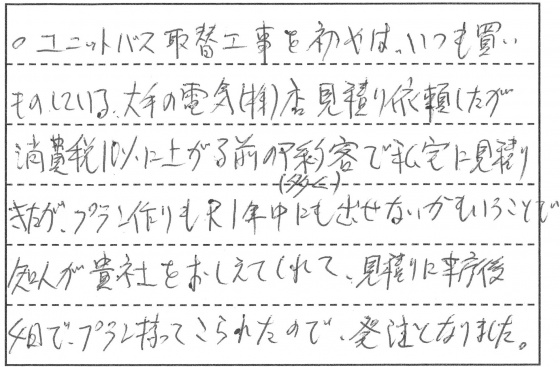 ○ユニットバス取替工事を初めは、いつも買い
ものしている、大手の電気(株)店見積り依頼したが
消費税10%に上がる前の客で私宅に見積り
(多く)
きたが、プラン作りも年中にも出せないかもということで
知人が貴社をおしえてくれて、見積りに来た後
4日で、プラン持ってこられたので、発注となりました。